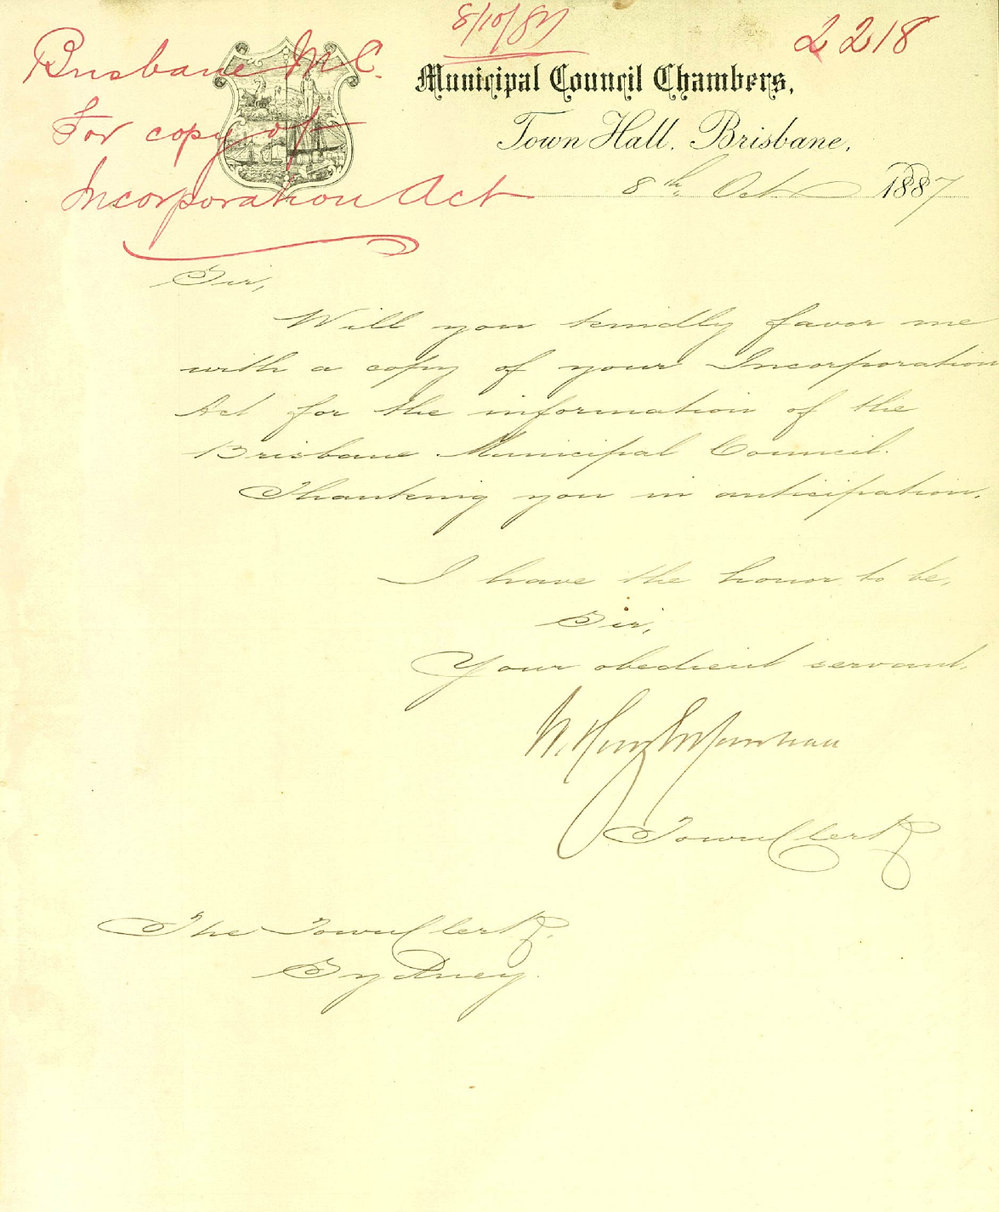 8/10/87
2218
Brisbane M.C.
For copy of
Incorporation Act
Municipal Council Chambers,
Town Hall, Brisbane,
8th Oct. 1887
Sir,
Will you kindly favor me
with a copy of your Incorporation
Act for the information of the
Brisbane Municipal Council.
Thanking you in anticipation.
I have the honor to be,
Sir,
Your obedient servant,
Town Clerk
The Town Clerk,
Sydney.